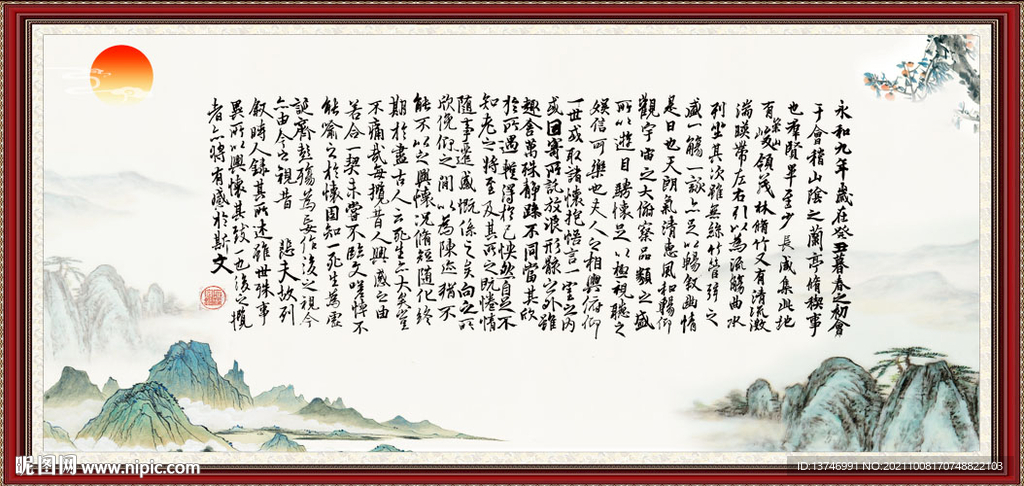 永和九年歲在癸丑暮春之初會
于會稽山陰之蘭亭脩稧事
也羣賢畢至少長咸集此地
有崇山峻領茂林脩竹又有清流激
湍暎帶左右引以為流觴曲水
列坐其次雖無絲竹管弦之
盛一觴一詠亦足以暢敘幽情
是日也天朗氣清惠風和暢仰
觀宇宙之大俯察品類之盛
所以遊目騁懷足以極視聽之
娛信可樂也夫人之相與俯仰
一世或取諸懷抱悟言一室之內
或因寄所託放浪形骸之外雖
趣舍萬殊靜躁不同當其欣
於所遇暫得於己怏然自足不
知老之將至及其所之既惓情
隨事遷感慨係之矣向之所
欣俛仰之間以為陳迹猶不
能不以之興懷況脩短隨化終
期於盡古人云死生亦大矣豈
不痛哉每攬昔人興感之由
若合一契未嘗不臨文嗟悼不
能喻之於懷固知一死生為虛
誕齊彭殤為妄作後之視今
亦由今之視昔 悲夫故列
敘時人錄其所述雖世殊事
異所以興懷其致一也後之攬
者亦將有感於斯文
昵图网 www.nipic.com
ID:13746991 NO:20211008170748822103